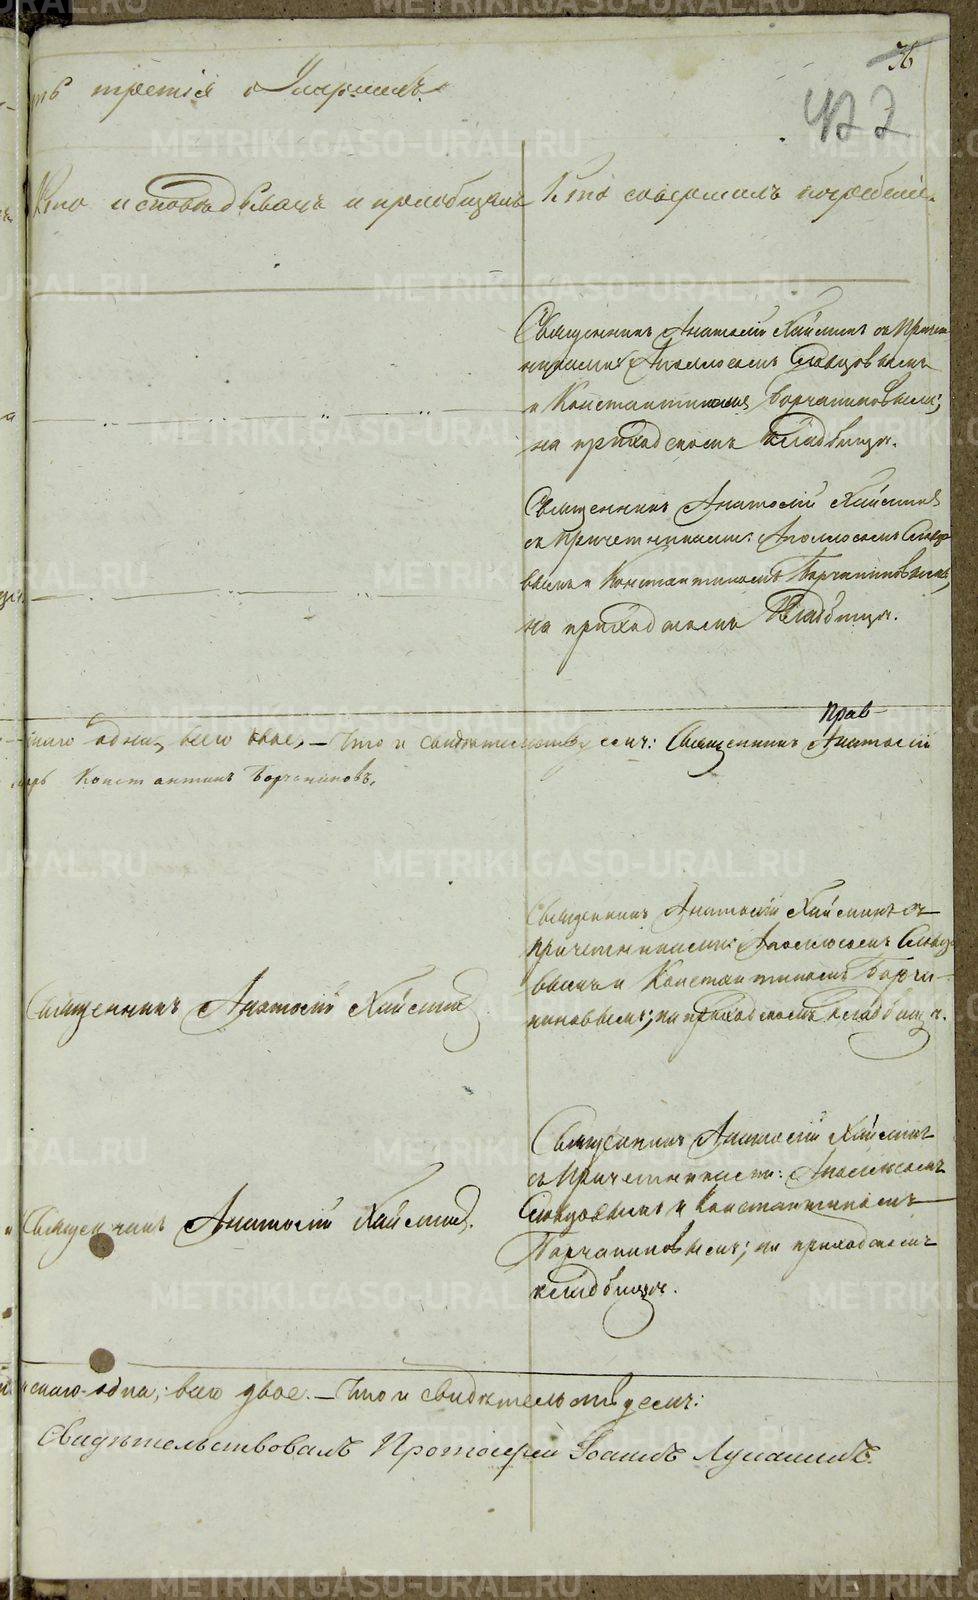 36
422
ть третія о Умершихъ.
Кто исповѣдывалъ и пріобщалъ
Кто совершалъ погребеніе.
Священникъ Анатолій Хаймин съ Причет
никами: Аполлосомъ Словцовымъ
и Константиномъ Борчаниновымъ,
на приходскомъ кладбищѣ.
Священникъ Анатолій
съ Причетниками: Аполлосомъ Словцо
вымъ и Константиномъ Борчаниновымъ,
на приходскомъ кладбищѣ.
скаго одна, всего двое. – Что и свидѣтельствуемъ: Священникъ Анатолій
Константинъ Борчаниновъ.
Священникъ Анатолій съ
причетниками: Аполлосомъ Словцо
вымъ и Константиномъ Борча-
ниновымъ; на приходскомъ кладбищѣ.
Священникъ Анатолій
Священникъ Анатолій
съ Причетниками: Аполлосомъ
Словцовымъ и Константиномъ
Борчаниновымъ; на приходскомъ
кладбищѣ.
Священникъ Анатолій
скаго одна; всего двое. – Что и свидѣтельствуемъ:
Свидѣтельствовалъ Протоіерей Іоаннъ
METRIKI.GASO-URAL.RU